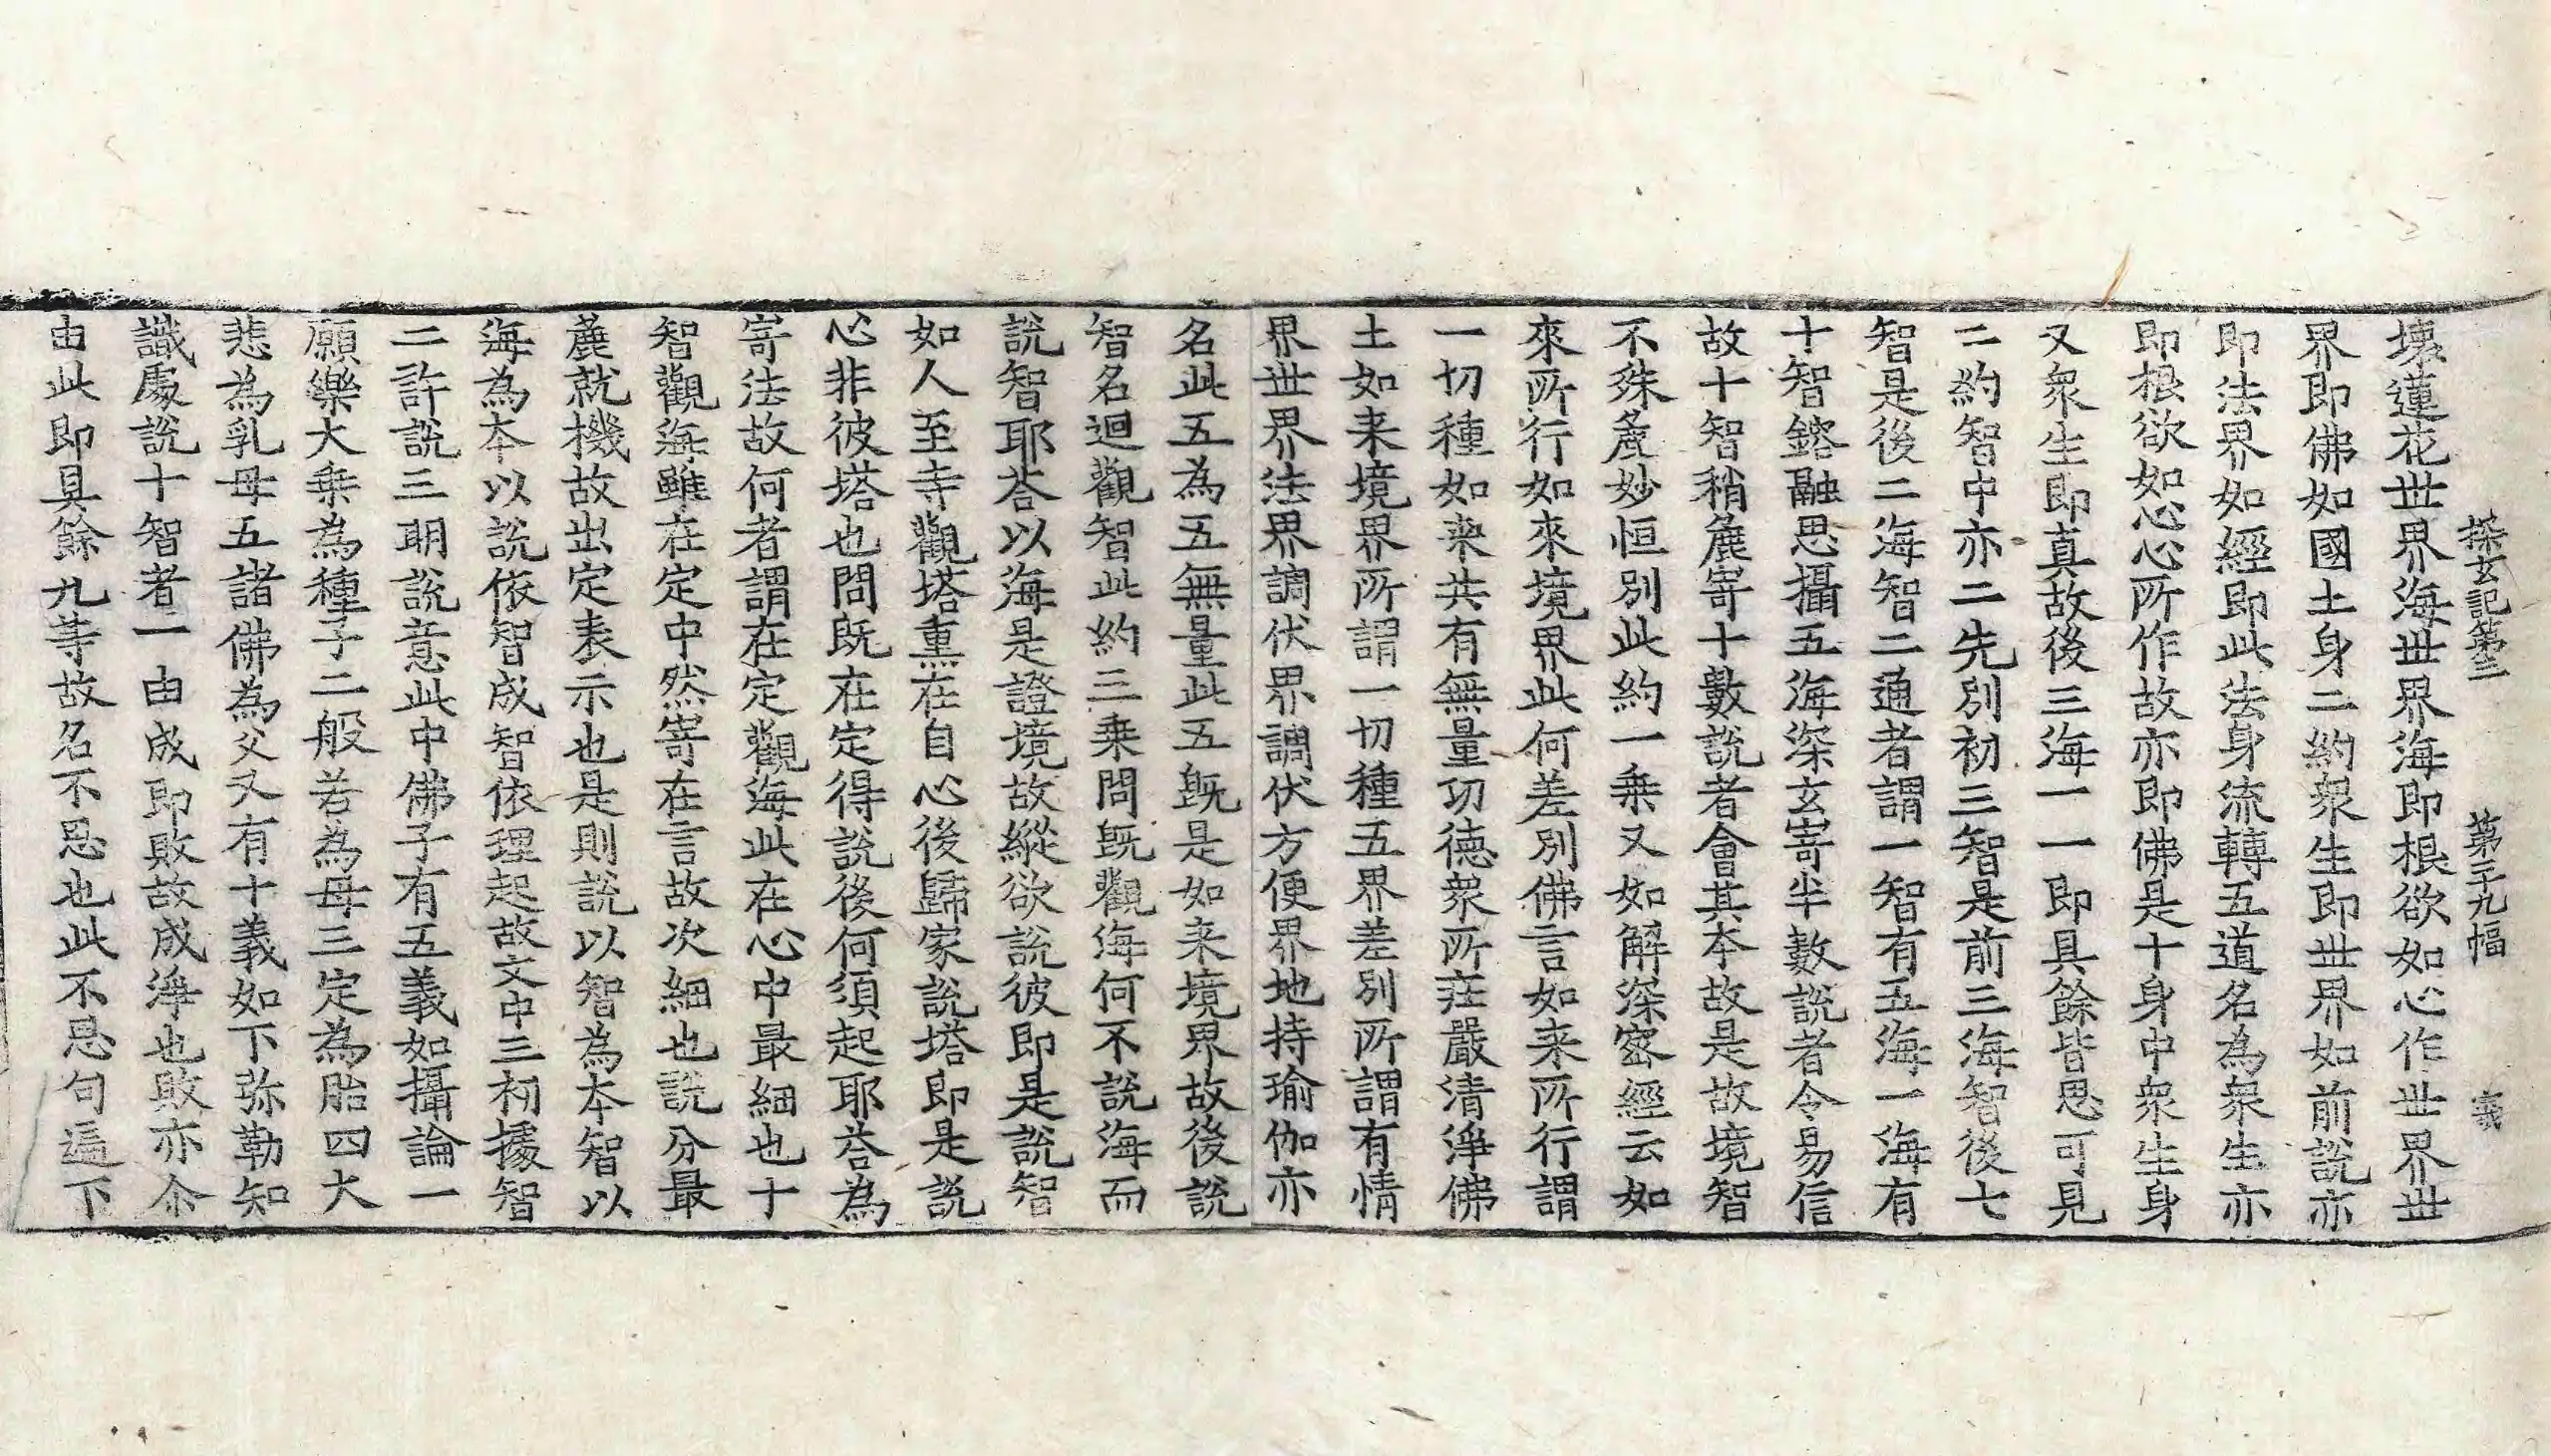 探玄記第三 第三十九幅 義
壞蓮花世界海世界海即根欲如心作世界世
界即佛如國土身二約衆生即世界如前說亦
即法界如經即此法身流轉五道名為衆生亦
即根欲如心心所作故亦即佛是十身中衆生身
又衆生即真故後三海一一即具餘皆思可見
二約智中亦二先別初三智是前三海智後七
智是後二海智二通者謂一智有五海一海有
十智鎔融思攝五海深玄寄半數說者令易信
故十智稍麁寄十數說者會其本故是故境智
不殊麁妙恒別此約一乗又如解深密經云如
來所行如來境界此何差別佛言如来所行謂
一切種如来共有無量功德衆所莊嚴清淨佛
土如来境界所謂一切種五界差別所謂有情
界世界法界調伏界調伏方便界地持瑜伽亦
名此五為五無量此五旣是如来境界故後說
智名迴觀智此約三乗問旣觀海何不說海而
說智耶荅以海是證境故縱欲說彼即是說智
如人至寺觀塔熏在自心後歸家說塔即是說
心非彼塔也問旣在定得說後何須起耶荅為
寄法故何者謂在定觀海此在心中最細也十
智觀海雖在定中然寄在言故次細也說分最
麁就機故出定表示也是則說以智為本智以
海為本以說依智成智依理起故文中三初據智
二許說三明說意此中佛子有五義如攝論一
願樂大乗為種子二般若為母三定為胎四大
悲為乳母五諸佛為父又有十義如下弥勒知
識處說十智者一由成即敗故成淨也敗亦尒
由此即具餘九等故名不思也此不思句遍下